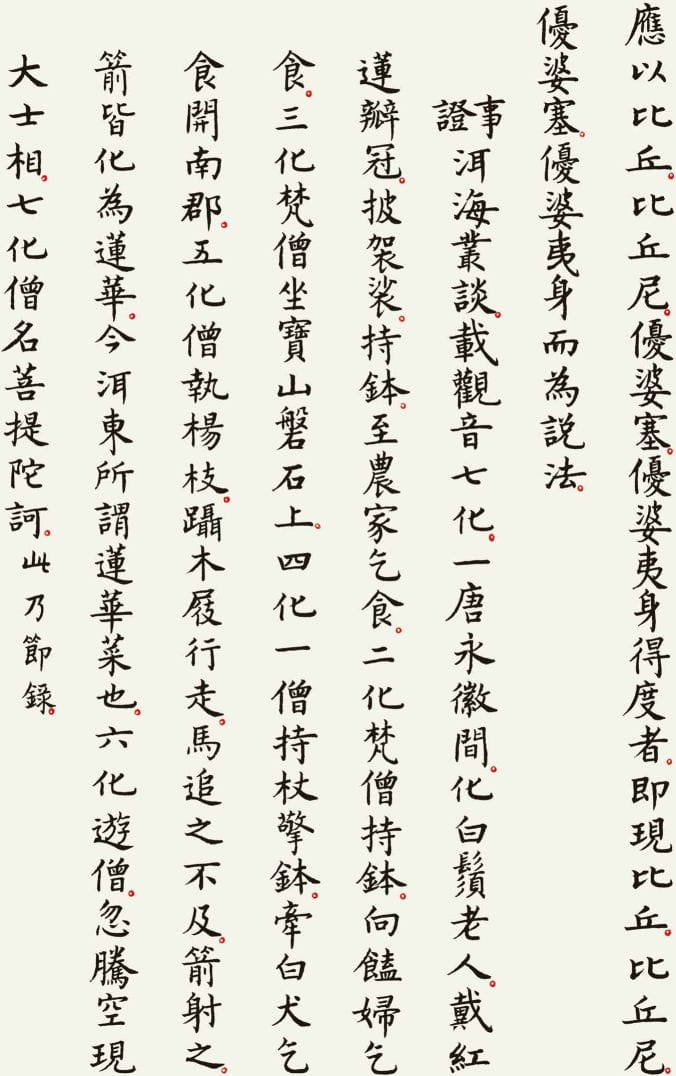 應以比丘。比丘尼。優婆塞。優婆夷身得度者。即現比丘。比丘尼。
優婆塞。優婆夷身而為說法。
事證洱海叢談。載觀音七化。一唐永徽間。化白鬚老人。戴紅
蓮瓣冠。披袈裟。持鉢。至農家乞食。二化梵僧持鉢。向饁婦乞
食。三化梵僧坐寶山磐石上。四化一僧持杖擎鉢。牽白犬乞
食開南郡。五化僧執楊枝。躡木屐行走。馬追之不及。箭射之。
箭皆化為蓮華。今洱東所謂蓮華菜也。六化遊僧。忽騰空現
大士相。七化僧名菩提陀訶。此乃節錄。